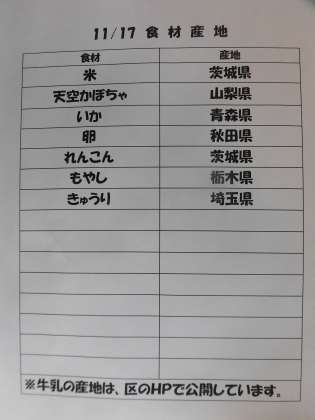 11/17 食材産地
食材 産地
米 茨城県
天空かぼちゃ 山梨県
いか 青森県
卵 秋田県
れんこん 茨城県
もやし 栃木県
きゅうり 埼玉県
※牛乳の産地は、区のHPで公開しています。